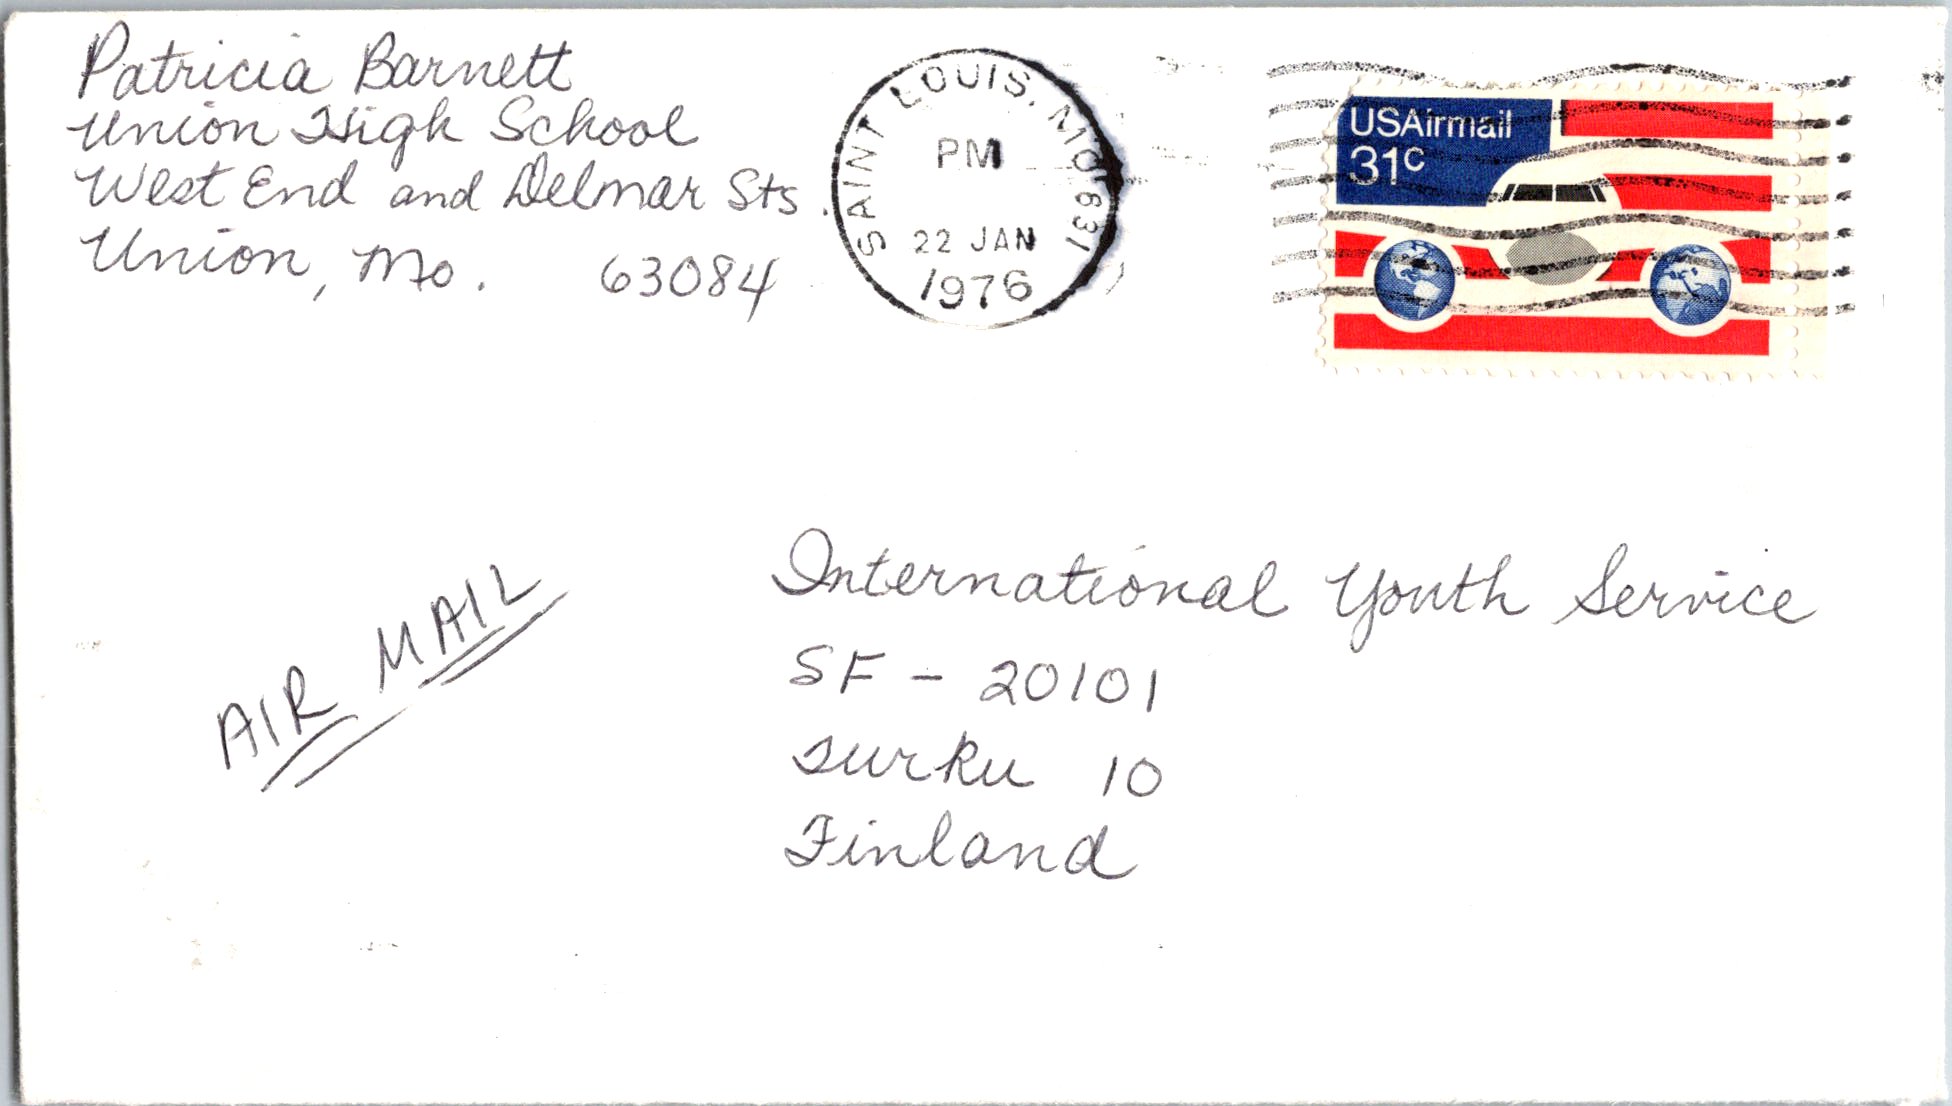 Patricia Barnett
Union High School
West End and Delmar Sts.
Union, Mo. 63084
SAINT LOUIS, MO 631
PM
22 JAN
1976
USAirmail
31c
AIR MAIL
International Youth Service
SF - 20101
Turku 10
Finland